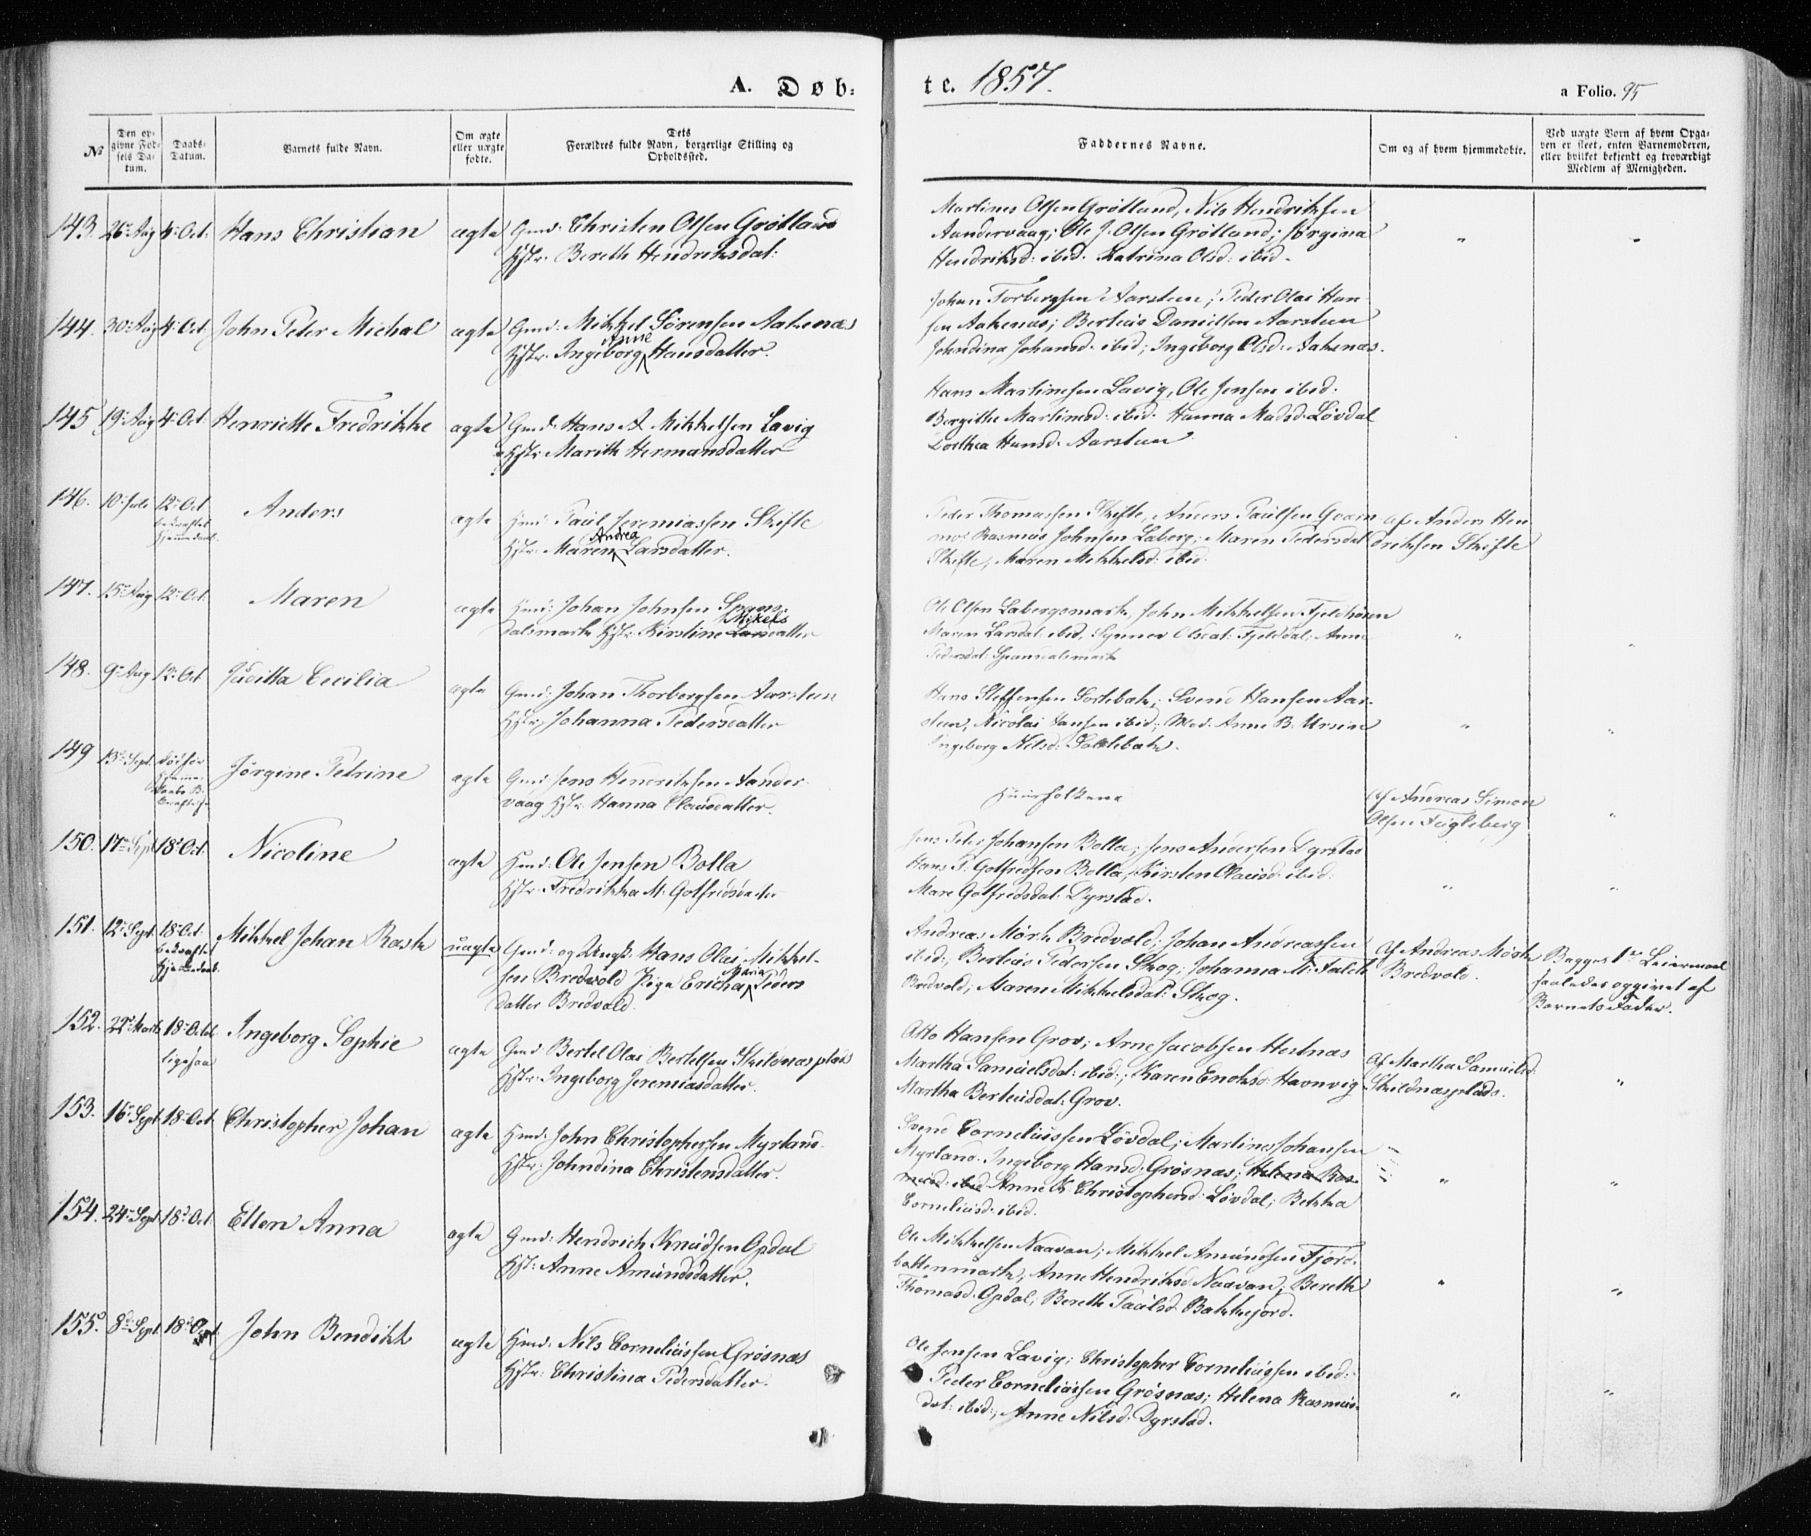 A. Døb-
te. 1857.
a Folio. 95
No
Den op-
givne Fød-
sels Da-
tum.
Daabs-
Datum.
Barnets fulde Navn.
Om ægte
eller uægte
fødte.
Dets
Forældres fulde Navn, borgerlige Stilling og
Opholdssted.
Faddernes Navne.
Om og af hvem hjemmedøbte.
Ved uægte Born af hvem Opga-
ven er skeet, enten Barnemoderen,
eller hvilket bekjendt og troværdigt
Medlem af Menigheden.
143. 26 Aug 4 Oct. Hans Christian ægte Gmd: Christen Olsen Grøtland
Hstr. Bereth Hendriksdat:
Martines Olsen Grøtland, Nils Hendriksen
Aandervaag; Ole J. Olsen Grøtland; Jørgina
Hendriksd: ibid. Katrina Olsd: ibid. " "
144. 30 Aug 4 Oct. John Peter Michal ægte Gmd: Mikkel Sørensen Aakenæs
Hstr. Ingeborg Anne Hansdatter.
Johan Torbergsen Aarsteen; Peder Olai Han-
sen Aakenæs; Berteus Danielsen Aarsteen
Johndina Johansd. ibid; Ingeborg Olsd. Aakenæs.
145 19 Aug 4 Oct Henriette Fredrikke ægte Gmd: Hans A Mikkelsen Lavig
Hstr: Marith Hermansdatter
Hans Martinesen Lavig, Ole Jensen ibid.
Bergithe Martinesd. ibid. Hanna Madsd. Løvdal
Dorthea Hansd. Aarsteen
146. 10 Juli 12 Oct
Anders ægte Hmd: Paul Jeremiassen Skifte
Hstr. Maren Andrea Larsdatter.
Peder Thomassen Skifte, Anders Paulsen Gram
Rasmus Johnsen Laberg; Maren Pedersdat
Skifte, Maren Mikkelsd. ibid.
af Anders Hen-
driksen Skifte
147. 15 Aug 12 Oct. Maren ægte Hmd: Johan Johnsen Spans-
dalsmark Hstr. Kirstine Mikels datter
Ole Olsen Labergsmark, John Mikkelsen
Maren Larsdat. ibid, Synnev Olsdat: Fjelddal, Anne
Pedersdat. Spansdalsmark " "
148. 9 Aug 12 Oct Juditta Cecilia ægte Gmd: Johan Thorbergsen Aarsteen
Hstr, Johanna Pedersdatter
Hans Steffensen Sørlebak; Svend Hansen Aar-
steen, Nicolai Hansen ibid; Mad. Anne B. Ursin
Ingeborg Nilsd: " "
149 13 Sept. Jørgine Petrine ægte Gmd: Jens Hendriksen Aander-
vaag Hstr. Hanna Clausdatter.
Huusfolkene
af Andreas Simon
Olsen "
150. 17 Sept 18 Oct. Nicoline ægte Hmd: Ole Jensen Bolla
Hstr: Fredrikka M. Gotfredsdatter
Jens Peter Johansen Bolla; Jens Andersen Dyrstad
Hans P. Gotfredsen Bolla, Kirsten Olausd: ibid:
Mare Gotfredsdat: Dyrstad. " "
151. 12 Sept. 18 Oct. Mikkel Johan Rask uægte Gmd: og Ungk. Hans Olai Mikkel-
sen Bredvold Pige Ericha Maria Peders
datter Bredvold.
Andreas Mørk Bredvold; Johan Andreassen
ibid; Berteus Pedersen Skog; Johanna M. Falch
Bredvold; Maren Mikkelsdat: Skog.
af Andreas Mørk
Bredvold.
Begges 1ste Leiermaal
saaledes opgivet af
Barnets Fader.
152. 22 Marts 18 Octbr
ligesaa
Ingeborg Sophie ægte Gmd Bertel Olai Bertelsen Skildnæsplads
Hstr: Ingeborg Jeremiasdatter.
Otto Hansen Grov; Arne Jacobsen Hestnæs
Martha Samuelsdat: ibid:; Karen Enoksd. Havnvig
Martha Berteusdat: Grov.
af Martha Samuelsd.
Skildnæsplads. "
153. 16 Sept 18 Oct Christopher Johan ægte Hmd: John Christophersen Myrland
Hstr: Johndina Christensdatter.
Svend Corneliussen Løvdal; Martines Johansen
Myrland. Ingeborg Hansd. Grøsnæs; Helena Ras-
musd. ibid Anne K Christophersd. Løvdal; Bekka
Corneliusd. ibid. " "
154. 24 Sept 18 Oct. Ellen Anna ægte Gmd: Hendrich Knudsen Opdal
Hstr: Anne Amundsdatter.
Ole Mikkelsen Naavan; Mikkel Amundsen Fjord-
bottenmark, Anne Hendriksd Naavan; Bereth
Thomasd. Opdal; Bereth Paulsd. Bakkejord. " "
155. 8 Sept 18 Oct John Bendikt ægte Hmd: Nils Corneliussen Grøsnæs
Hstr: Christina Pedersdatter.
Ole Jensen Lavig; Christopher Corneliussen ibid:
Peder Corneliussen Grøsnæs; Helena Rasmus-
dat: ibid:, Anne Nilsd. Dyrstad. " "